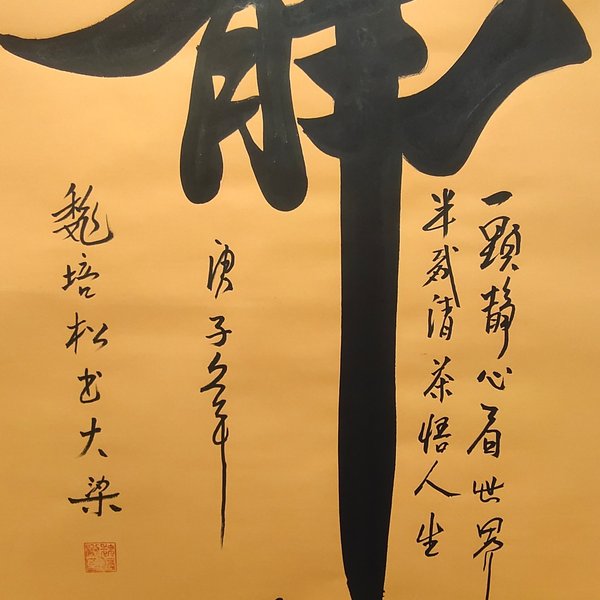 静
一顆静心看世界
半盏清茶悟人生
庚子年
魏培松书大梁